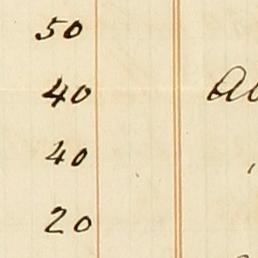 50
40
40
20